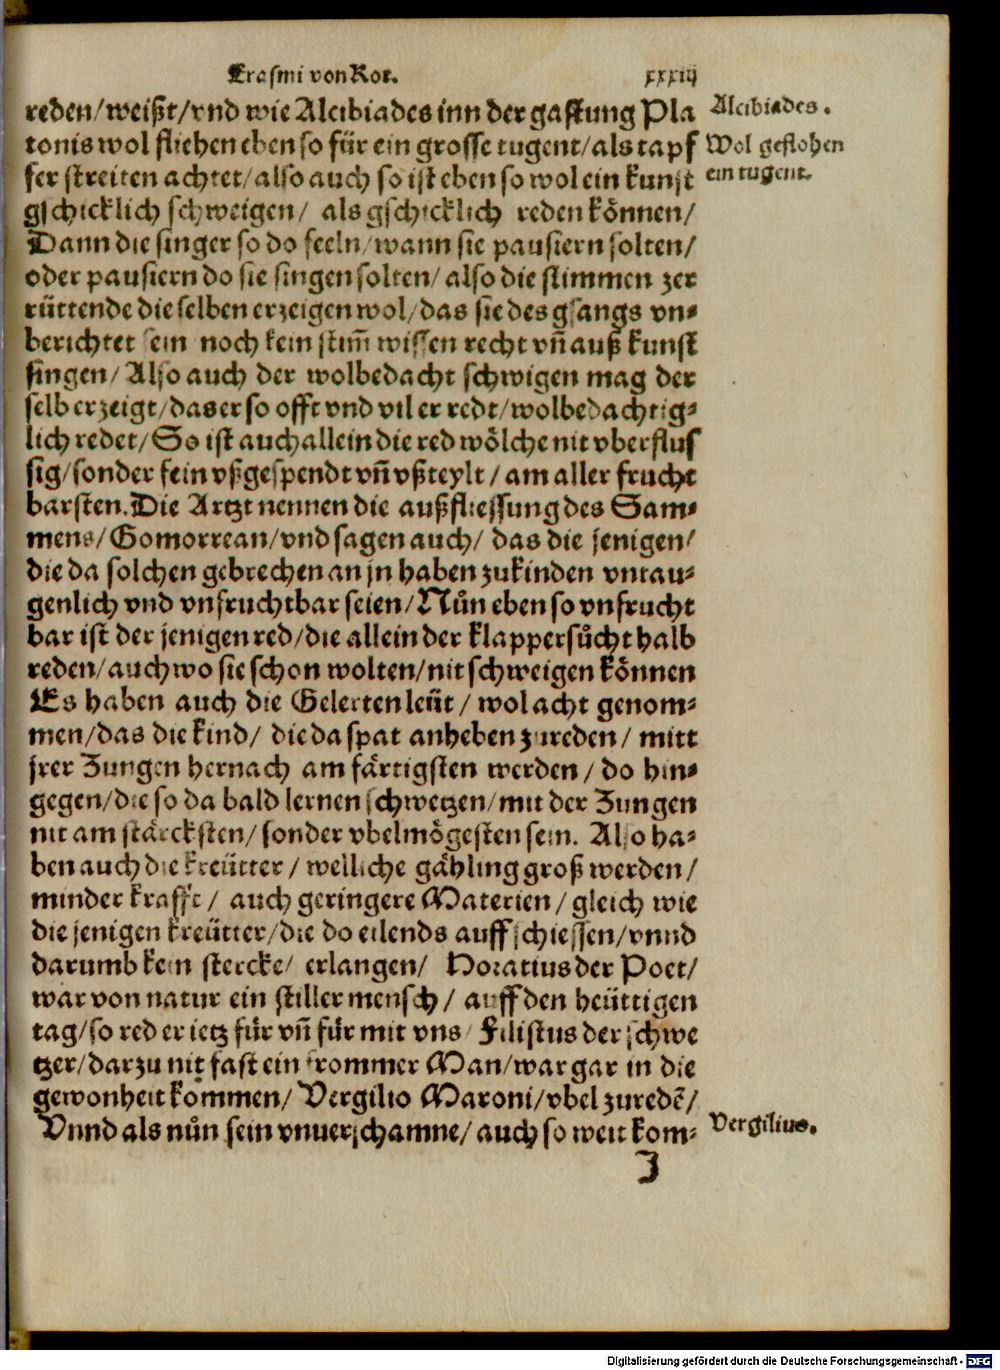 Erasmi von Rot. xxxiij
reden/weißt/vnd wie Alcibiades inn der gastung Pla
tonis wol fliehen eben so für ein grosse tugent/als tapf
fer streiten achtet/also auch so ist eben so wol ein kunst
gschicklich schweigen/ als gschicklich reden können/
Dann die singer so do feeln/wann sie pausiern solten/
oder pausiern do sie singen solten/also die stimmen zer
rüttende die selben erzeigen wol/das sie des gsangs vn⸗
berichtet sein noch kein stim̃ wissen recht vñ auß kunst
singen/ Also auch der wolbedacht schwigen mag der
selb erzeigt/das er so offt vnd vil er redt/wolbedachtig⸗
lich redet/So ist auch allein die red wölche nit vberflus
sig/sonder fein vßgespendt vñ vßteylt/am aller frucht
barsten.Die Artzt nennen die außfliessung des Sam⸗
mens/Gomorrean/vnd sagen auch/ das die jenigen/
die da solchen gebrechen an jn haben zukinden vntau⸗
genlich vnd vnfruchtbar seien/Nůn eben so vnfrucht
bar ist der jenigen red/die allein der klappersůcht halb
reden/auch wo sie schon wolten/nit schweigen können
Es haben auch die Gelerten leüt/ wol acht genom⸗
men/das die kind/ die da spat anheben zureden/ mitt
jrer Zungen hernach am färtigsten werden/ do hin⸗
gegen/die so da bald lernen schwetzen/mit der Zungen
nit am stärcksten/sonder vbelmögesten sein. Also ha⸗
ben auch die kreütter/ welliche gähling groß werden/
minder krafft/ auch geringere Materien/gleich wie
die jenigen kreütter/die do eilends auffschiessen/vnnd
darumb kein stercke/ erlangen/ Horatius der Poet/
war von natur ein stiller mensch/ auff den heüttigen
tag/so red er ietz für vñ für mit vns/ Filistus der schwe
tzer/darzu nit fast ein frommer Man/war gar in die
gewonheit kommen/ Vergilio Maroni/vbel zuredẽ/
Vnnd als nůn sein vnuerschamne/auch so weit kom⸗
J
Alcibiades.
Wol geflohen
ein tugent.
Vergilius.
Digitalisierung gefördert durch die Deutsche Forschungsgemeinschaft - DFG